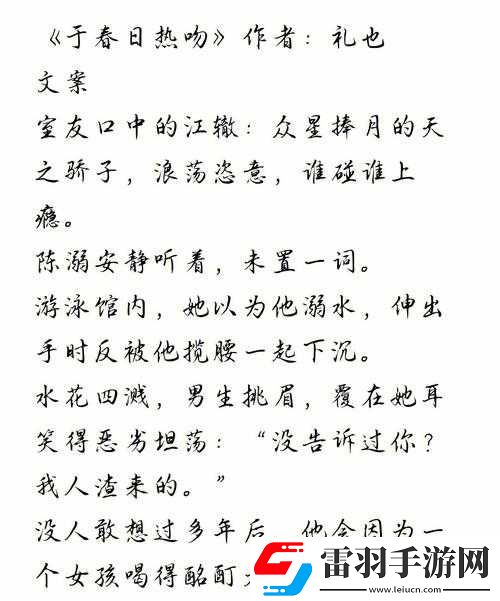 《于春日热吻》作者：礼也
文案
室友口中的江辙：众星捧月的天
之骄子，浪荡恣意，谁碰谁上
瘾。
陈溺安静听着，未置一词。
游泳馆内，她以为他溺水，伸出
手时反被他揽腰一起下沉。
水花四溅，男生挑眉，覆在她耳
笑得恶劣坦荡：“没告诉过你？
我人渣来的。”
没人敢想过多年后，他会因为一
个女孩喝得酩酊
雷羽手游网
www.leiucn.com